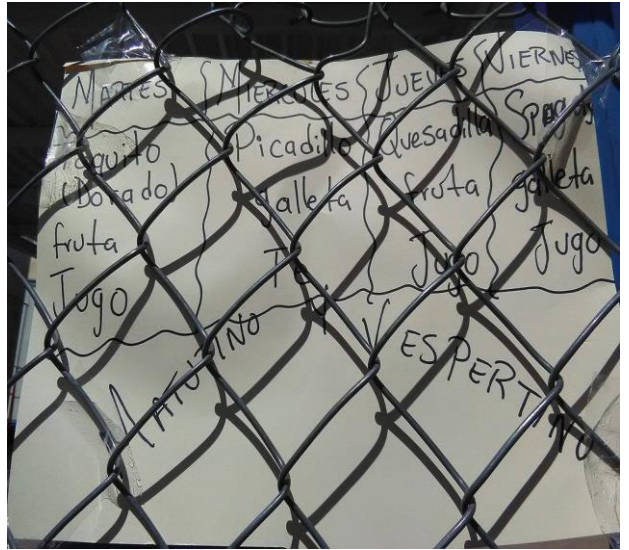 MARTES MIERCOLES JUEVES VIERNES
Taquito Picadillo Quesadilla Spagueti
(Dorado) galleta fruta galleta
fruta Té Jugo Jugo
Jugo
MATUTINO Y VESPERTINO